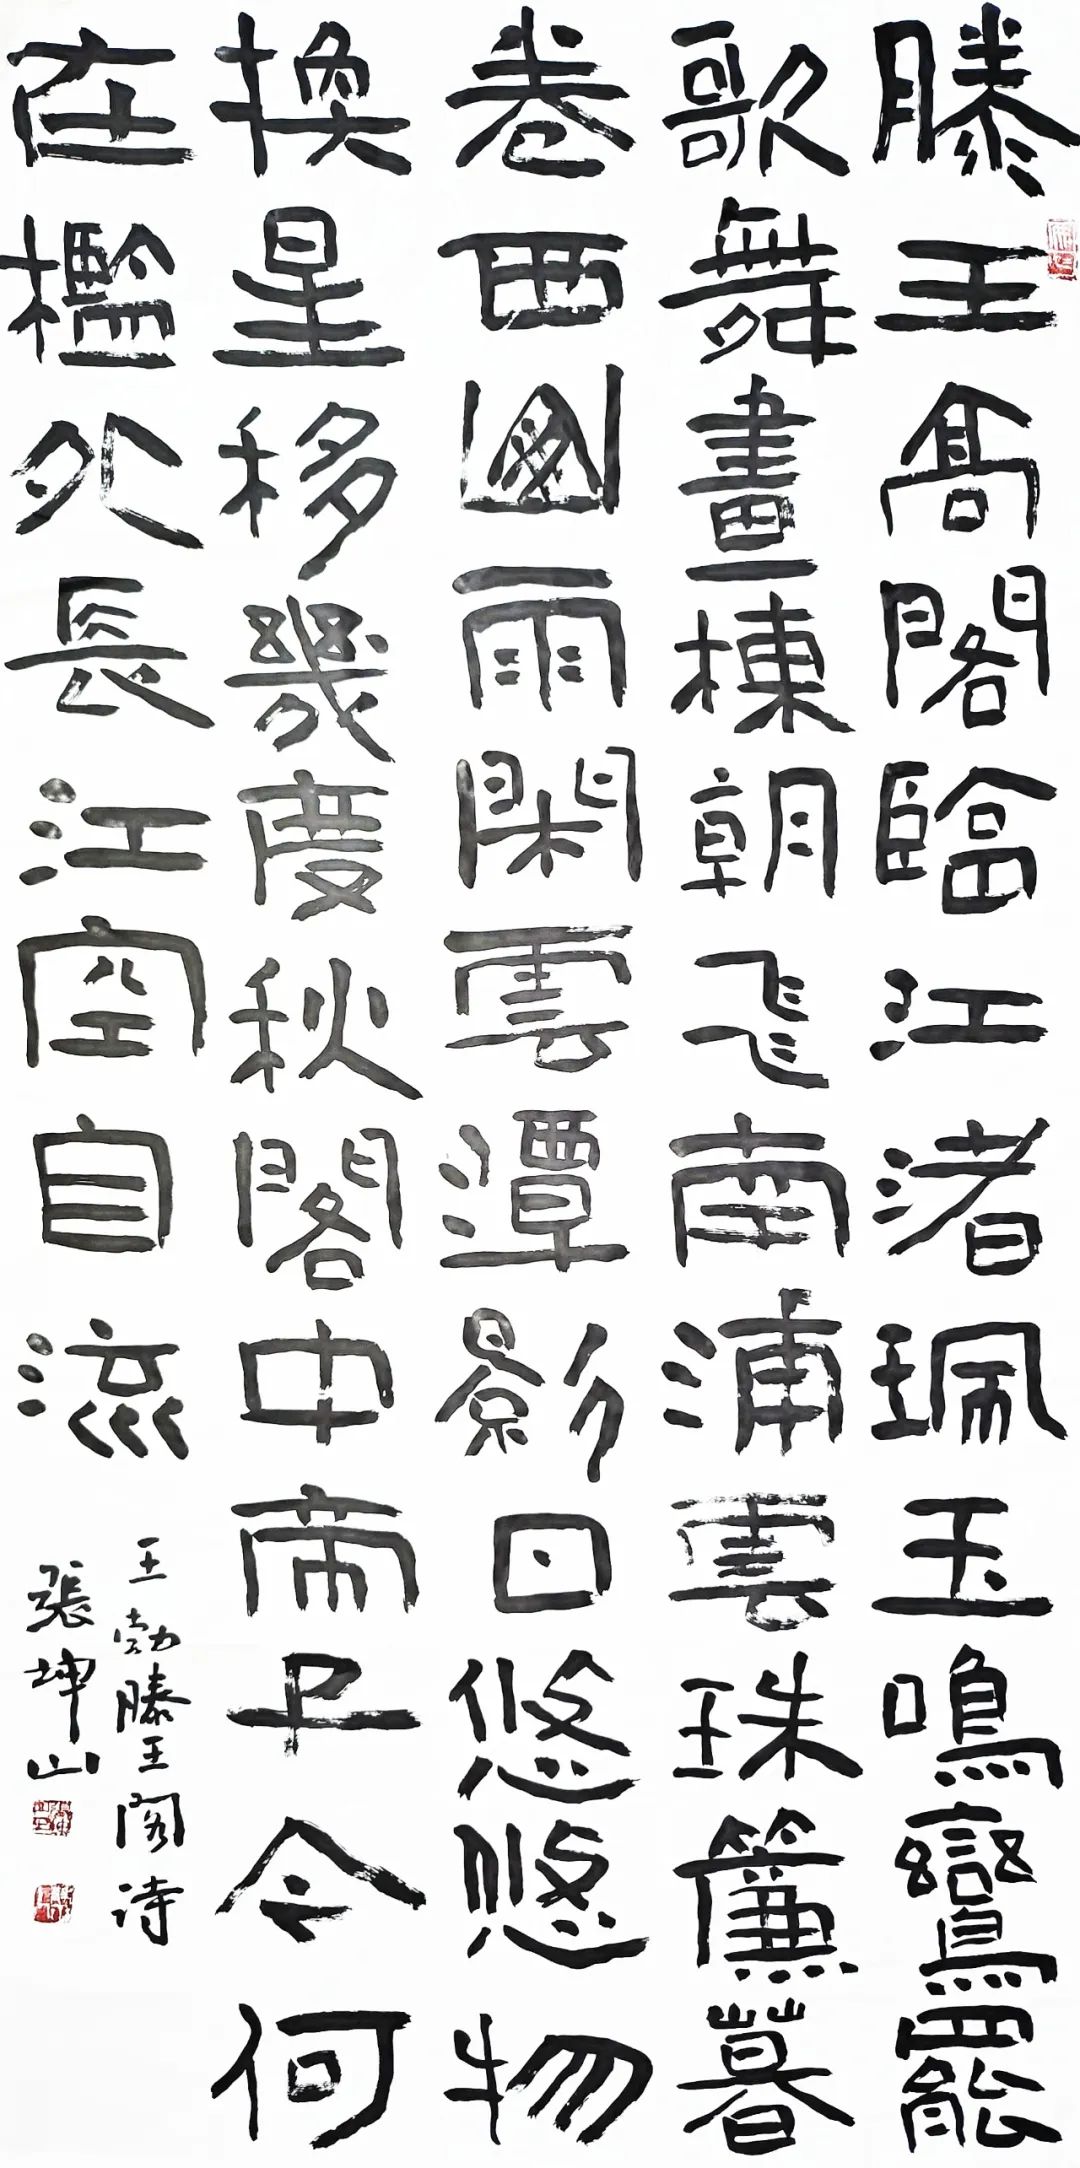 滕王高閣臨江渚珮玉鳴鸞罷
歌舞畫棟朝飛南浦雲珠簾暮
卷西山雨閑雲潭影日悠悠物
換星移幾度秋閣中帝子今何
在檻外長江空自流
王勃滕王閣詩
張坤山